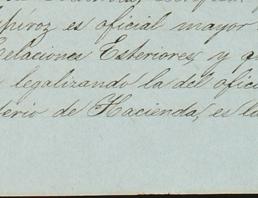 píroz es oficial mayor
Relaciones Esteriores, y q
legalizando la del ofici
terio de Hacienda, es la